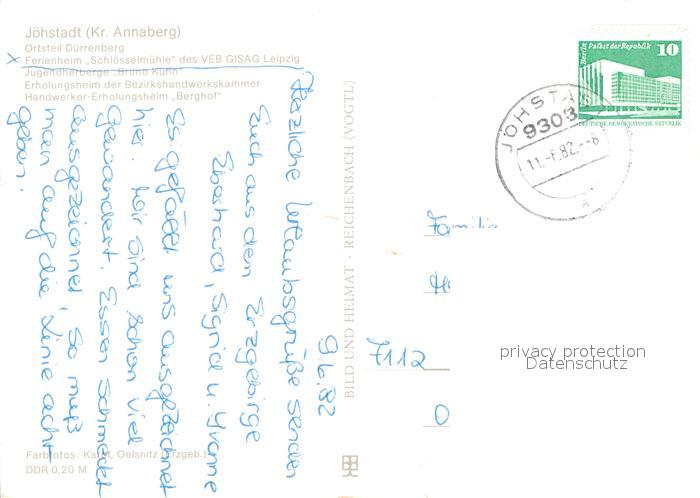 Jöhstadt (Kr. Annaberg)
Ortsteil Dürrenberg
x Ferienheim „Schlösselmühle" des VEB GISAG Leipzig
Jugendherberge „Bruno Kühn"
Erholungsheim der Bezirkshandwerkskammer
Handwerker-Erholungsheim „Berghof"
9.6.82
Herzliche Urlaubsgrüße senden
Euch aus dem Erzgebirge
Eberhard, Sigrid u. Yvonne
Es gefällt uns ausgezeichnet
hier. Wir sind schon viel
gewandert. Essen schmeckt
ausgezeichnet, so muß
man auf die Linie acht-
geben.
Farbfotos: Oelsnitz (Erzgeb.)
DDR 0,20 M
BILD UND HEIMAT · REICHENBACH (VOGTL)
Berlin Palast der Republik 10
DEUTSCHE DEMOKRATISCHE REPUBLIK
9303
Familie
7112
O
privacy protection
Datenschutz